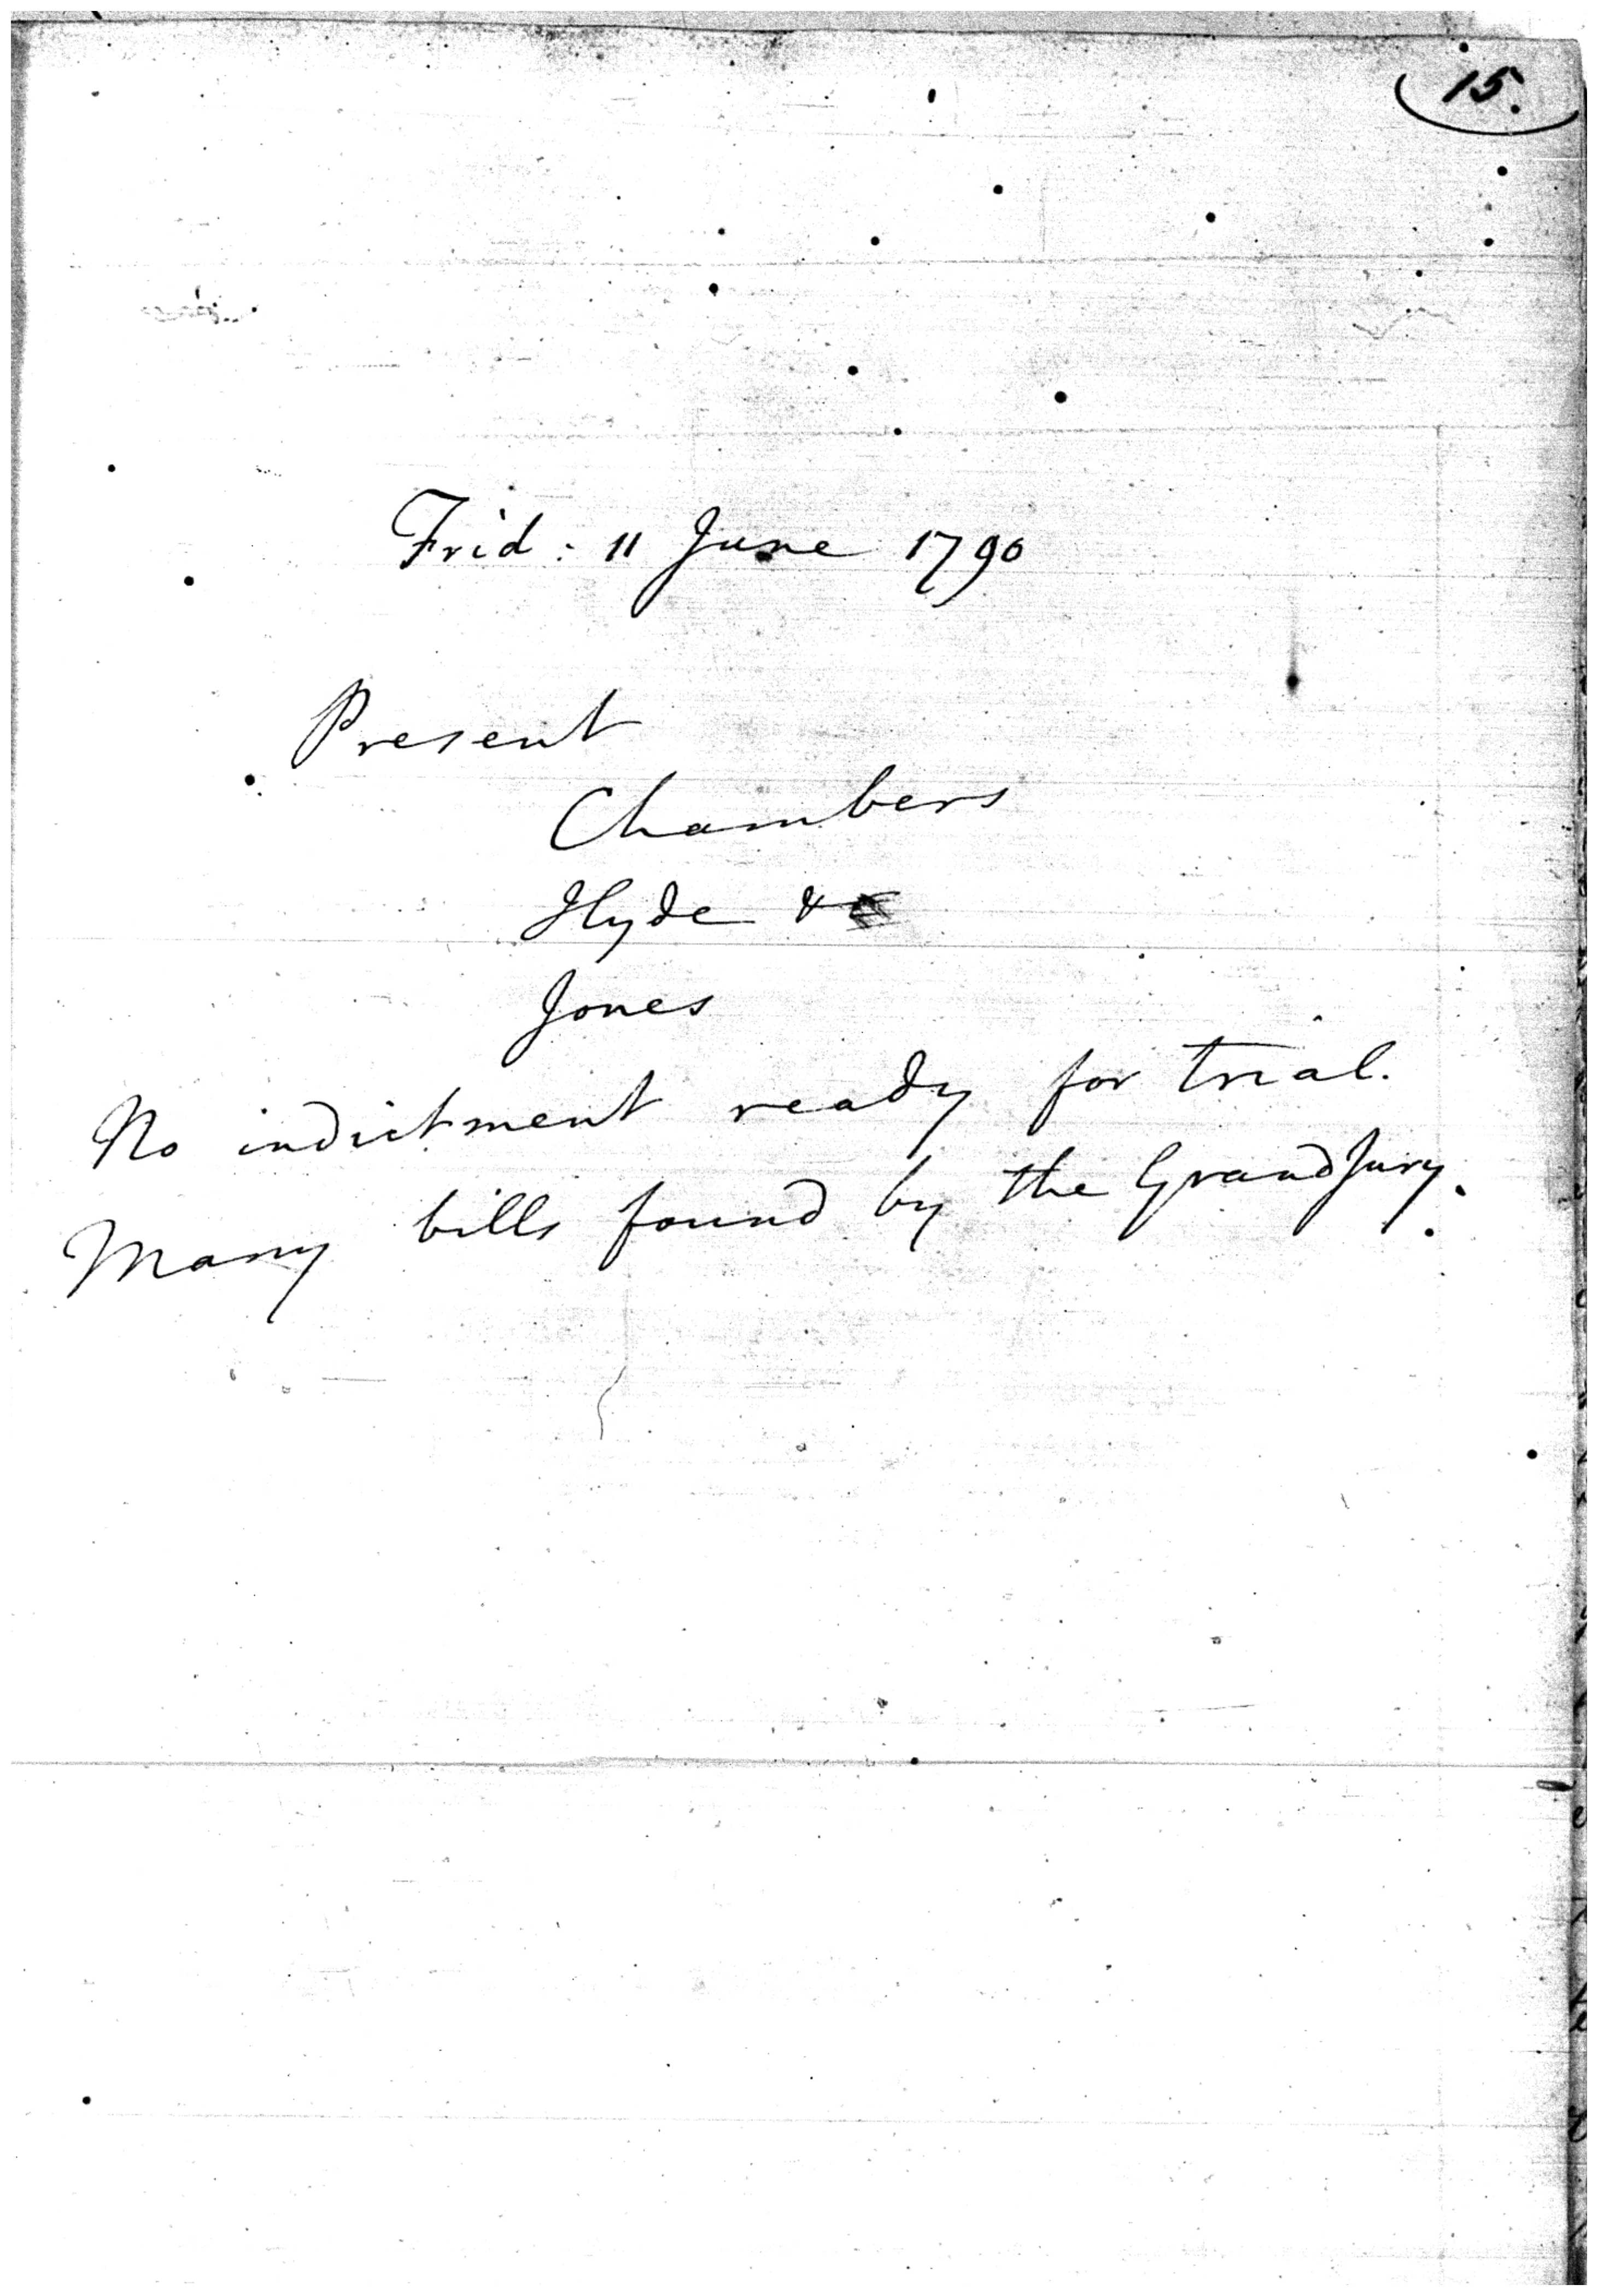 15.
Frid: 11 June 1790
Present
Chambers
Hyde &
Jones
No indictment ready for trial.
Many bills found by the Grand Jury.